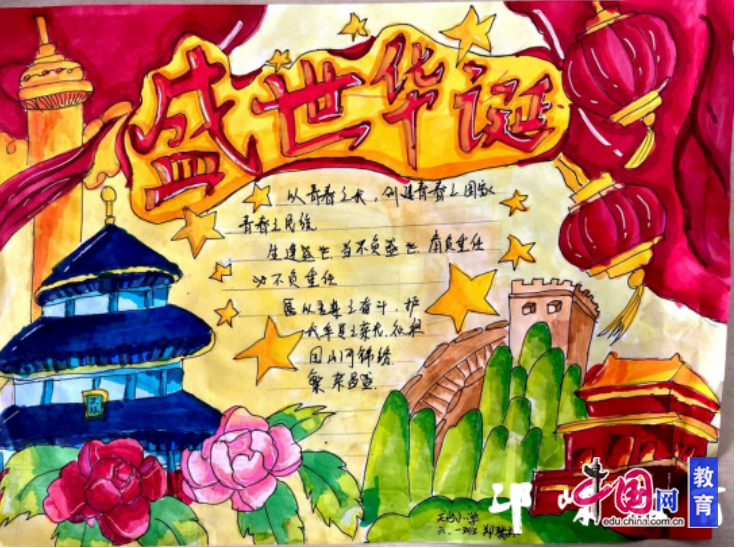 盛世华诞
以青春之我，创造青春之国家
青春之民族
生逢盛世 当不负盛世 肩负重任
必不负重任
愿以吾辈之奋斗，护
我华夏之
国山河锦绣
繁荣昌盛
天坛
小学
六、一班 郑
中国网
edu.china.com.cn
教育